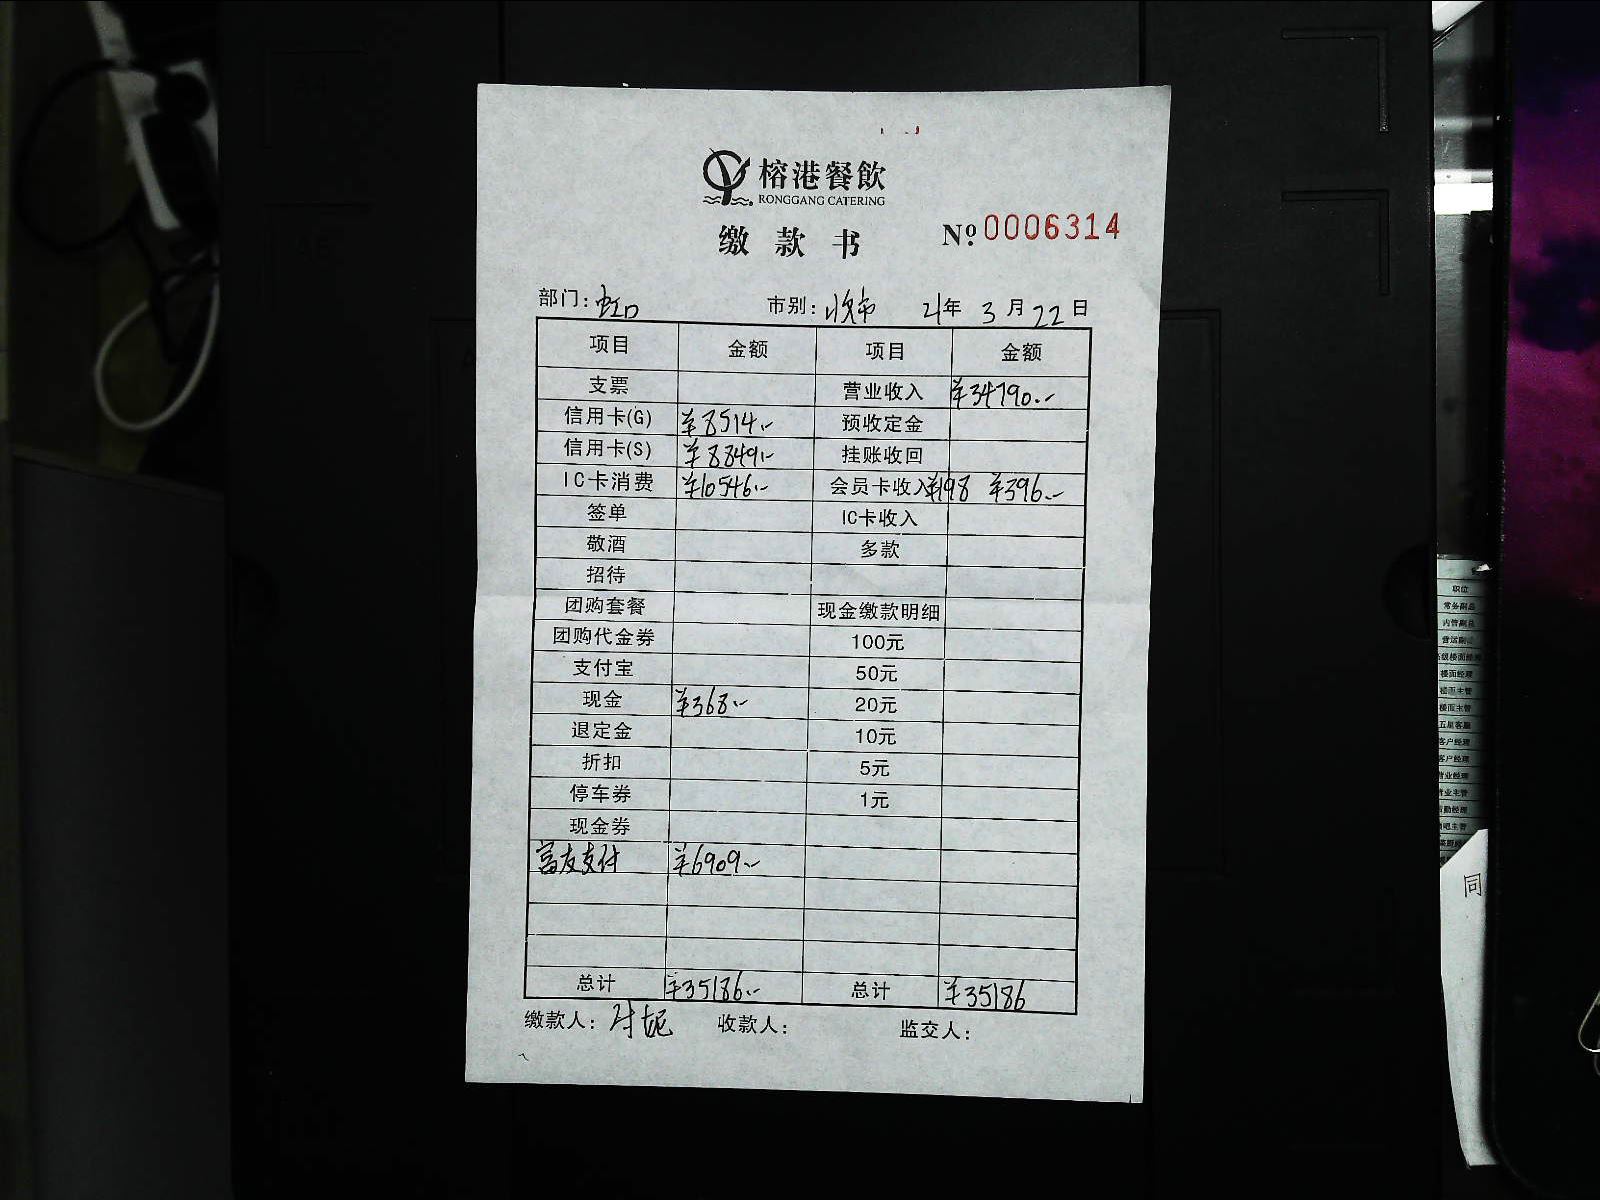 榕港餐飲
RONGGANG CATERING
缴款书 №0006314
部门：虹口 市别：晚市 21年3月22日
项目 金额 项目 金额
支票 营业收入 ¥34790.-
信用卡(G) ¥8514.- 预收定金
信用卡(S) ¥8849.- 挂账收回
IC卡消费 ¥10546.- 会员卡收入 ¥198 ¥396.-
签单 IC卡收入
敬酒 多款
招待
团购套餐 现金缴款明细
团购代金券 100元
支付宝 50元
现金 ¥368.- 20元
退定金 10元
折扣 5元
停车券 1元
现金券
富友支付 ¥6909.-
总计 ¥35186.- 总计 ¥35186
缴款人： 收款人： 监交人：
职位
常务副总
内管副总
营运副
楼面经理
楼面主管
楼面主管
五星客服
客户经理
客户经理
营业经理
营业主管
同